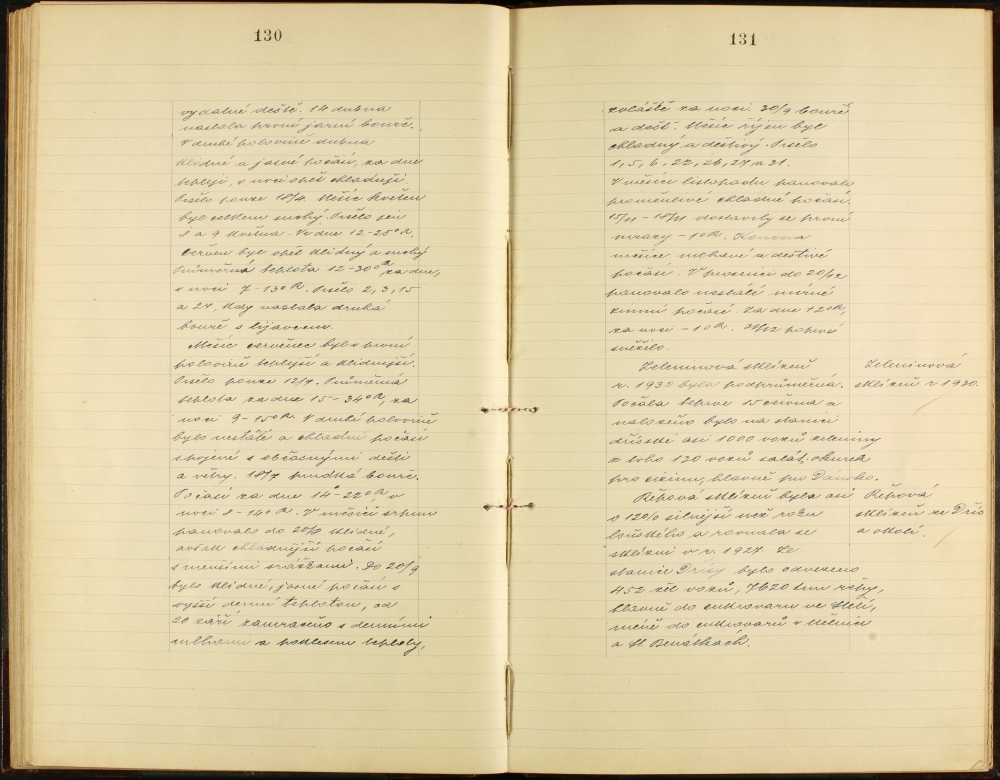 130
vydatné deště. 14 dubna
nastala první jarní bouře.
V druhé polovině dubna
klidné a jasné počasí, za dne
teplejší, v noci opět chladnější.
Pršelo pouze 18/4. Měsíc květen
byl celkem suchý. Pršelo jen
8 a 9 května. Ve dne 12-25° R.
Červen byl opět klidný a suchý
Průměrná teplota 12-30° R, za dne,
v noci 7-13° R. Pršelo 2, 3, 15
a 27, kdy nastala druhá
bouře s lijavcem.
Měsíc červenec byl v první
polovině teplejší a klidnější.
Pršelo pouze 12/7. Průměrná
teplota za dne 15-34° R, za
noci 9-15° R. V druhé polovině
bylo nestálé a chladné počasí
spojené s občasnými dešti
a větry. 18/7 prudká bouře.
Počasí za dne 14-22° R, v
noci 8-14° R. V měsíci srpnu
panovalo do 20/8 klidné,
avšak chladnější počasí
s menšími srážkami. Do 20/9
bylo klidné, jasné počasí s
vyšší denní teplotou, od
20 září zamračeno s denními
mlhami a poklesem teploty,
131
zvláště za noci. 30/9 bouře
a déšť. Měsíc říjen byl
chladný a deštivý. Pršelo
1, 5, 6, 22, 26, 27 a 31.
V měsíci listopadu panovalo
proměnlivé chladné počasí.
15/11 - 18/11 dostavily se první
mrazy -1° R. Koncem
měsíce mlhavé a deštivé
počasí. V prosinci do 20/12
panovalo nestálé mírné
zimní počasí. Za dne 12° R,
za noci -1° R. poprvé
sněžilo.
Zeleninová sklizeň
r. 1930 byla podprůměrná.
Počala teprve 15 června a
naloženo bylo na stanici
dříské asi 1000 vozů zeleniny
z toho 130 vozů salát. okurek
pro cizinu, hlavně pro Dánsko.
Zeleninová
sklizeň r 1930.
Řepová sklizeň byla asi
o 120% silnější než roku
loňského a rovnala se
sklizni v r. 1927. Ze
stanice Dřísy bylo odvezeno
452 žel vozů, 7620 tun řepy,
hlavně do cukrovaru ve Mělí,
méně do cukrovarů v Mělníce
a N. Benátkách.
Řepová
sklizeň ze Dřís
a okolí.